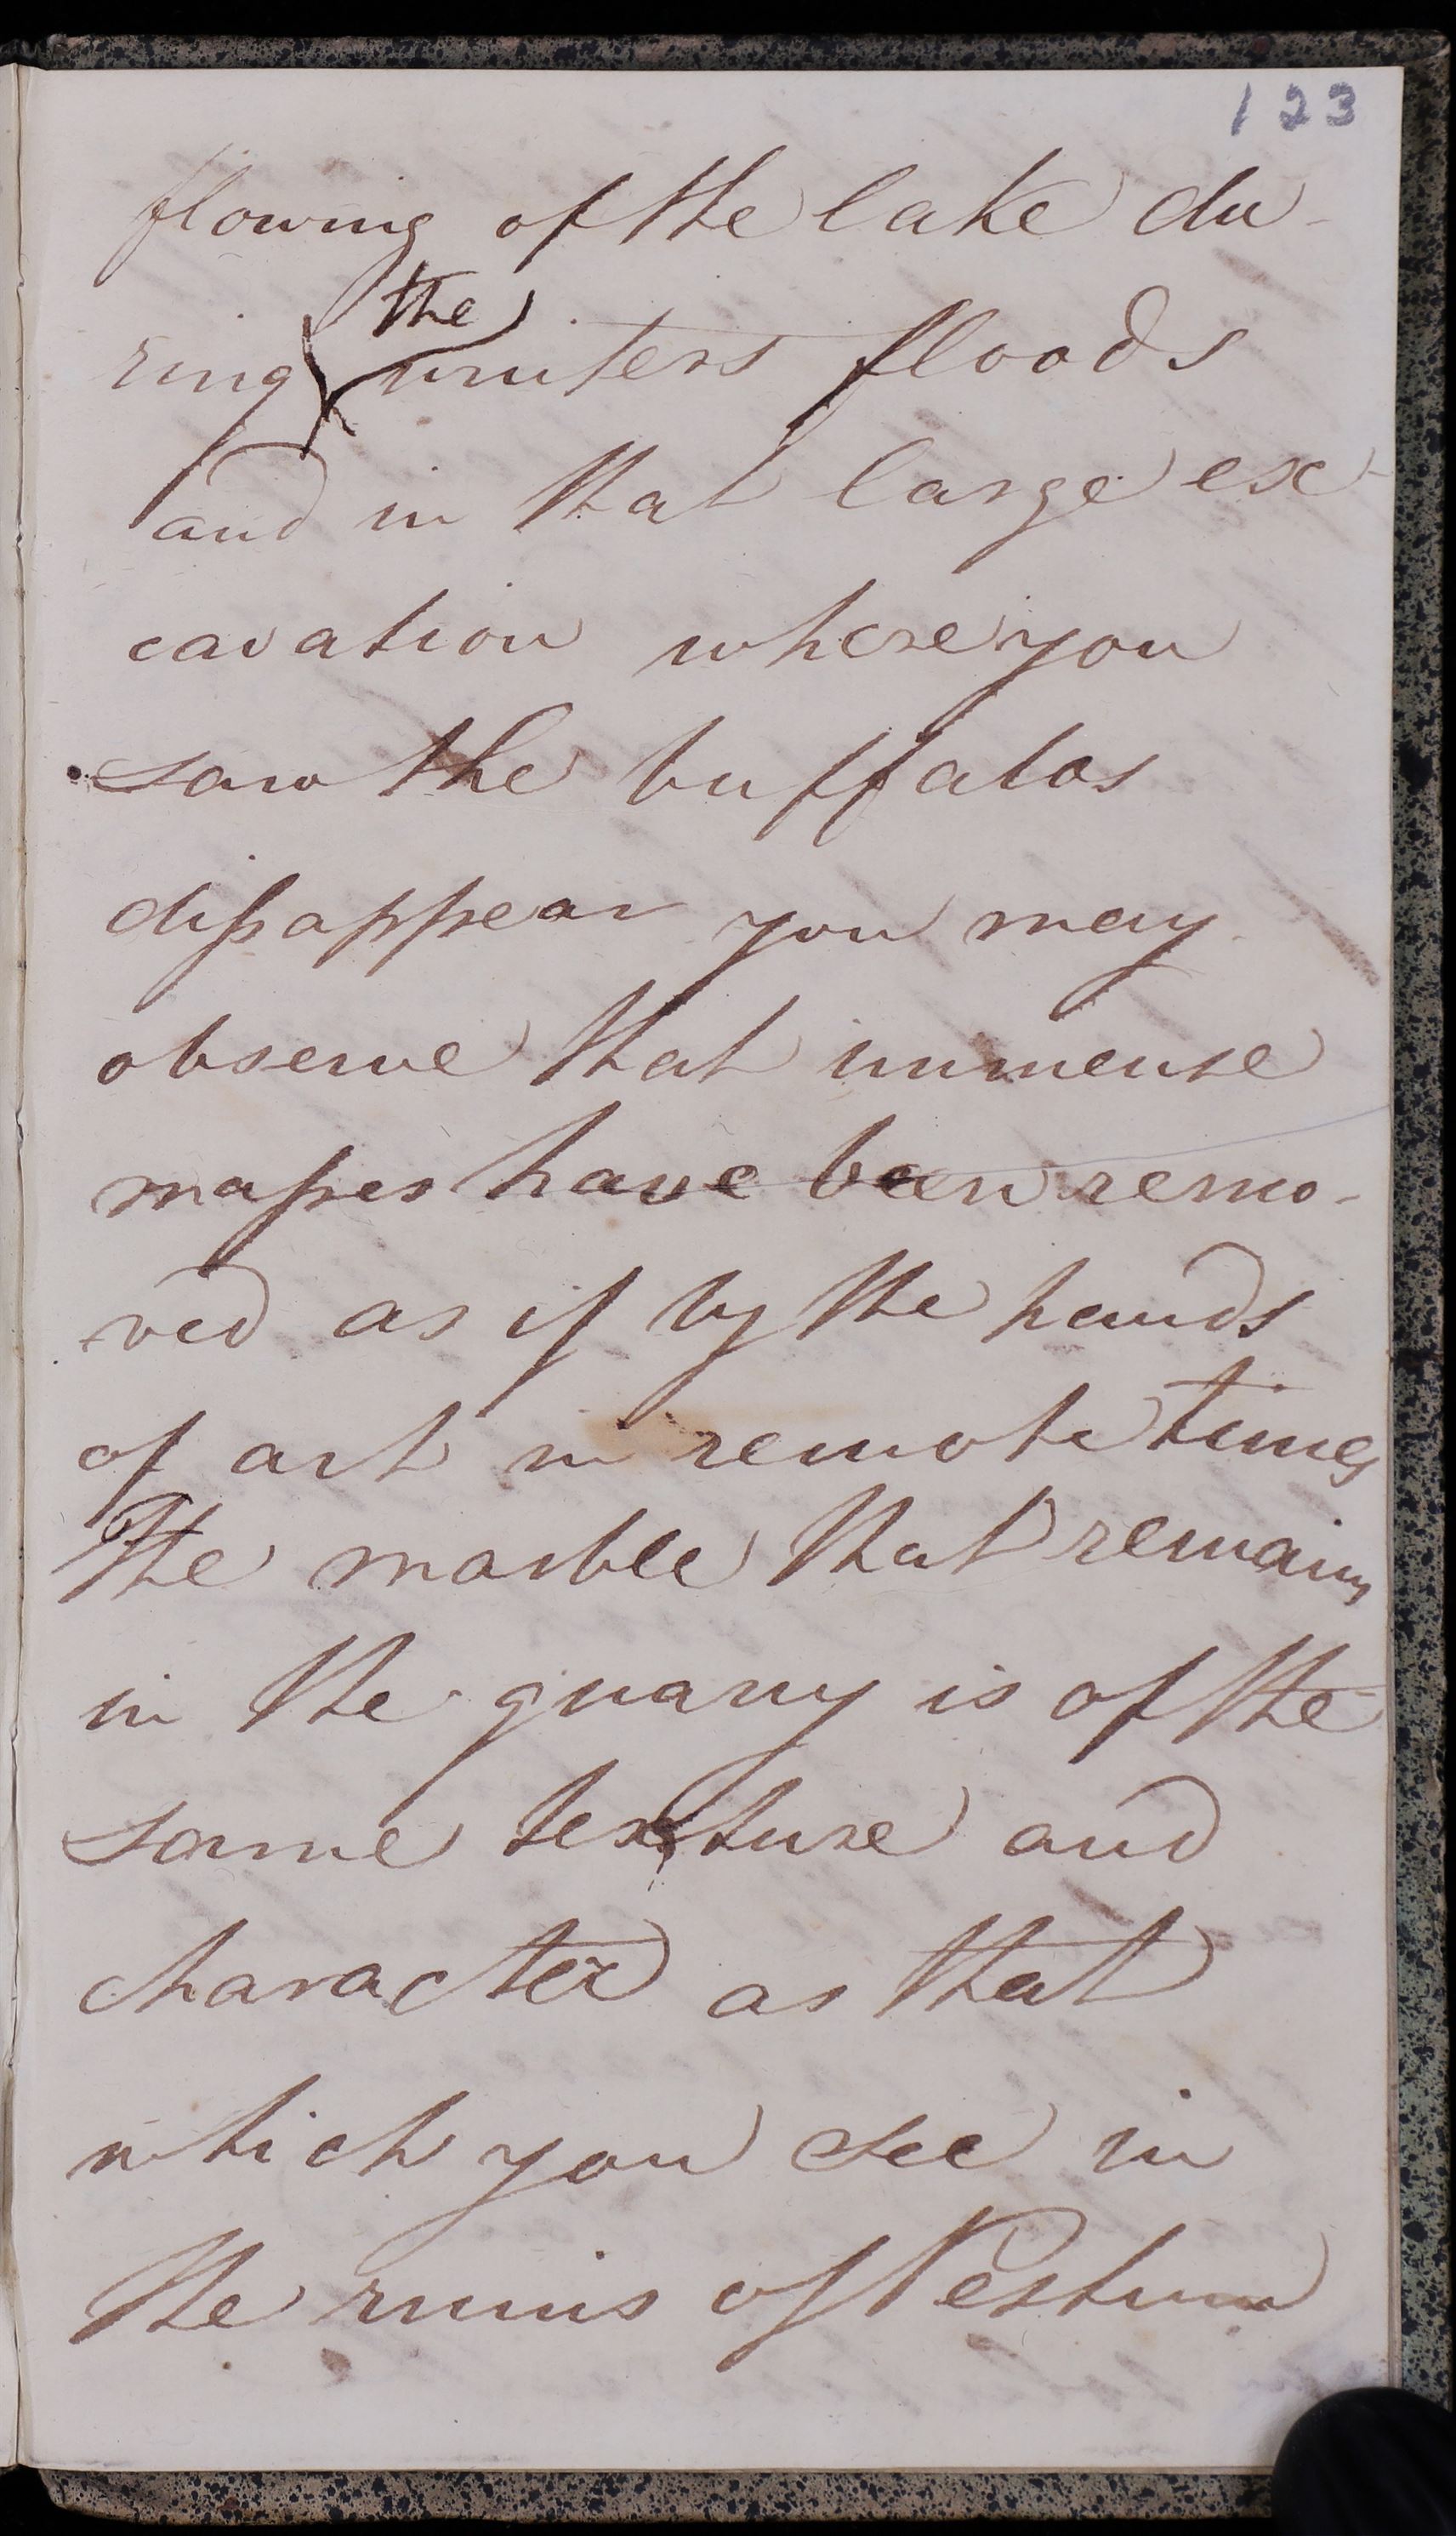 123
flowing of the lake du-
the
ring winters floods
and in that large ex-
cavation where you
saw the buffalos
dissappear you may
observe that immense
masses have been remo-
ved as if by the hands
of art in remote times
The marble that remains
in the quarry is of the
same texture and
character as that
which you see in
the ruins of Pestum